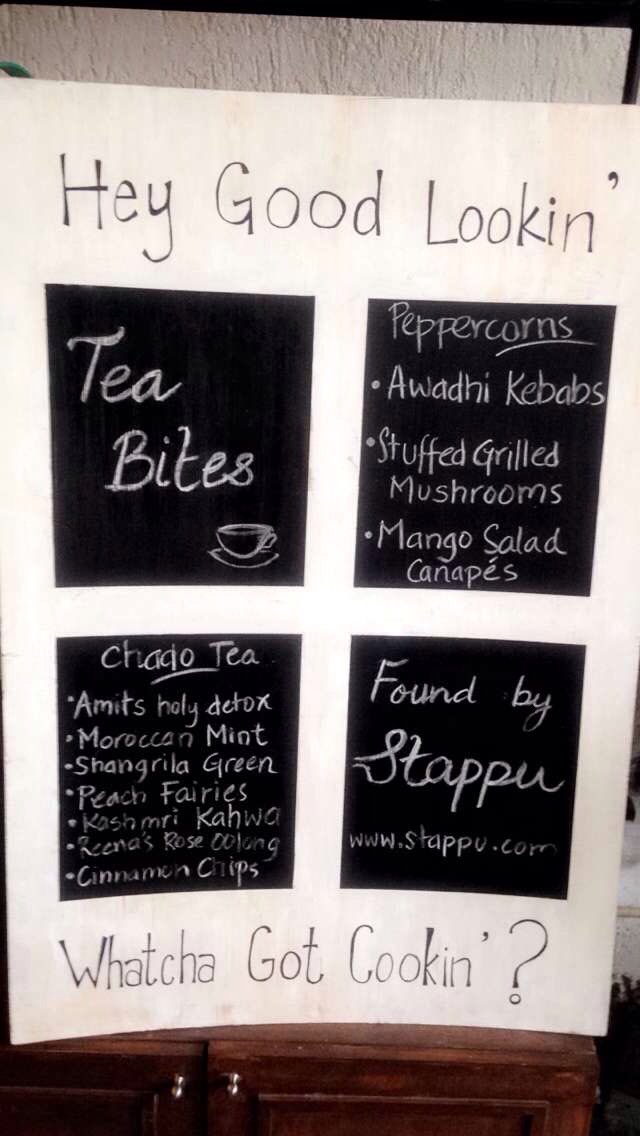 Hey Good Lookin'
Tea
Bites
Peppercorns
• Awadhi Kebabs
• Stuffed Grilled
Mushrooms
• Mango Salad
Cañapés
Chado Tea
• Amits holy detox
• Moroccan Mint
• Shangrila Green
• Peach Fairies
• Kashmri Kahwa
• Reena's Rose Oolong
• Cinnamon Chips
Found by
Stappu
www.stappu.com
Whatcha Got Cookin'?